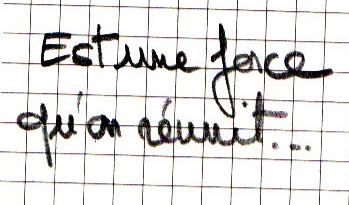 Est une force
qu'on réunit...